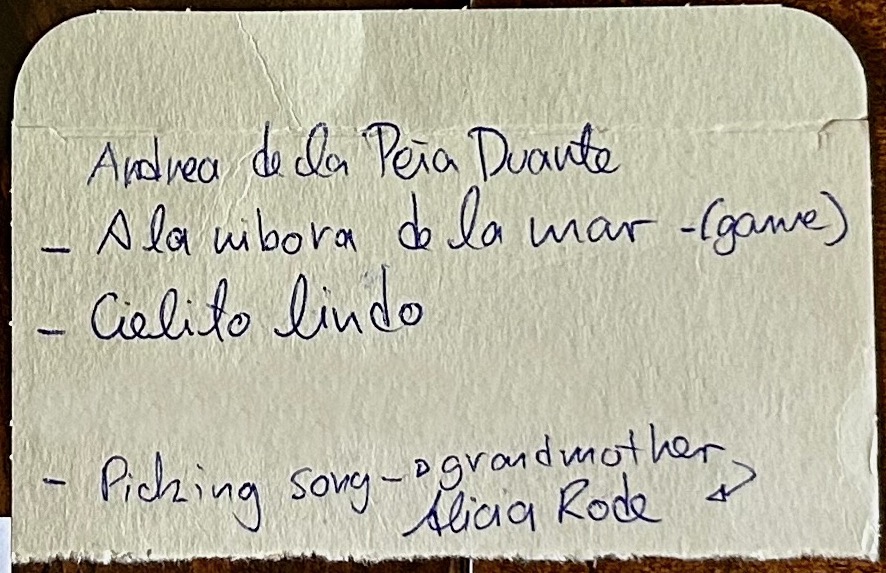 Andrea de la Peña Duarte
- A la vibora de la mar - (game)
- Cielito lindo
- Picking song -> grandmother
Alicia Rode